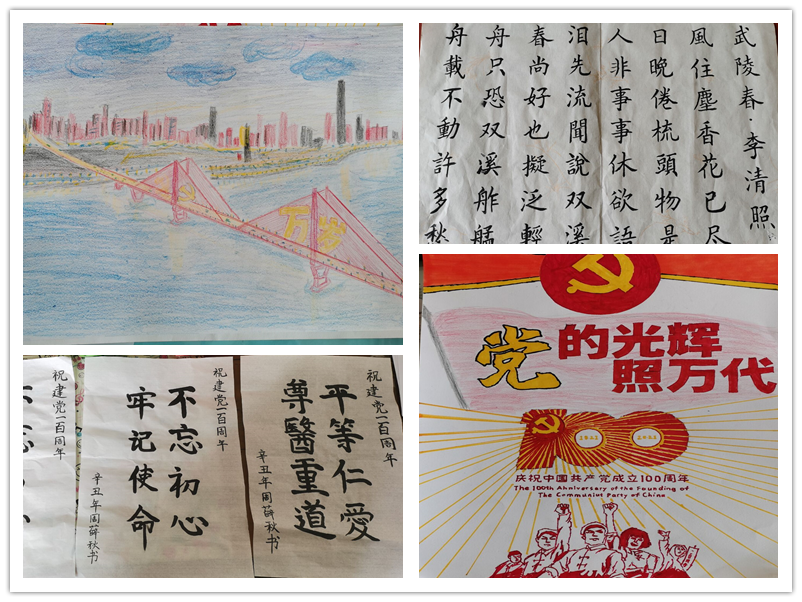 万岁
武陵春·李清照
風住塵香花已尽
日晚倦梳頭物是
人非事事休欲語
泪先流聞說双溪
春尚好也擬泛輕
舟只恐双溪舴艋
舟載不動許多愁
祝建党一百周年
平等仁愛
尊醫重道
辛丑年周薛秋书
祝建党一百周年
不忘初心
牢记使命
辛丑年周薛秋书
祝建党一百周年
党的光辉
照万代
1921 2021
庆祝中国共产党成立100周年
The 100th Anniversary of the Founding of
The Communist Party of China